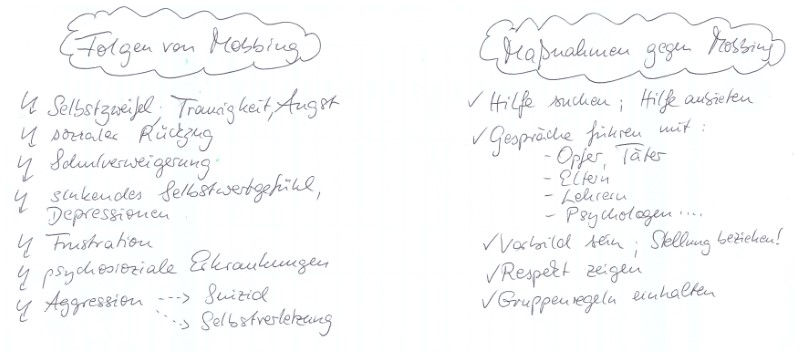 Folgen von Mobbing
Selbstzweifel, Traurigkeit, Angst
sozialer Rückzug
Schulverweigerung
sinkendes Selbstwertgefühl,
Depressionen
Frustration
psychosoziale Erkrankungen
Aggression ---> Suizid
---> Selbstverletzung
Maßnahmen gegen Mobbing
✓ Hilfe suchen; Hilfe anbieten
✓ Gespräche führen mit:
- Opfer, Täter
- Eltern
- Lehrern
- Psychologen....
✓ Vorbild sein; Stellung beziehen!
✓ Respekt zeigen
✓ Gruppenregeln einhalten